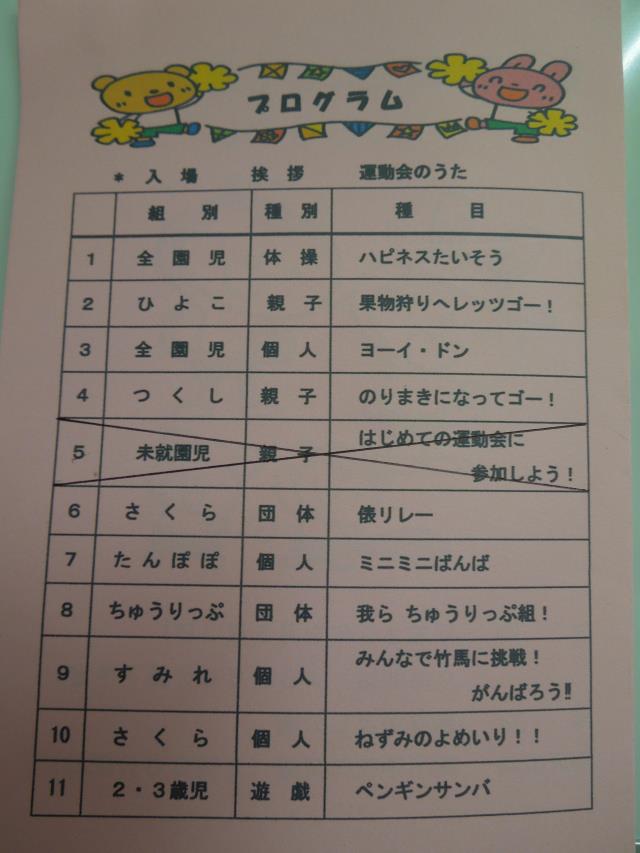 プログラム
* 入場 挨拶 運動会のうた
組別 種別 種目
1 全園児 体操 ハピネスたいそう
2 ひよこ 親子 果物狩りへレッツゴー！
3 全園児 個人 ヨーイ・ドン
4 つくし 親子 のりまきになってゴー！
5 未就園児 親子 はじめての運動会に
参加しよう！
6 さくら 団体 俵リレー
7 たんぽぽ 個人 ミニミニばんば
8 ちゅうりっぷ 団体 我ら ちゅうりっぷ組！
9 すみれ 個人 みんなで竹馬に挑戦！
がんばろう!!
10 さくら 個人 ねずみのよめいり！！
11 2・3歳児 遊戯 ペンギンサンバ